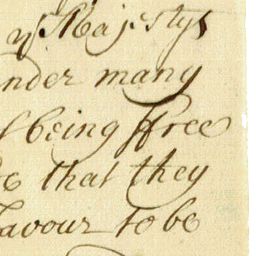 yr Majestys
nder many
being ffree
that they
avour to be